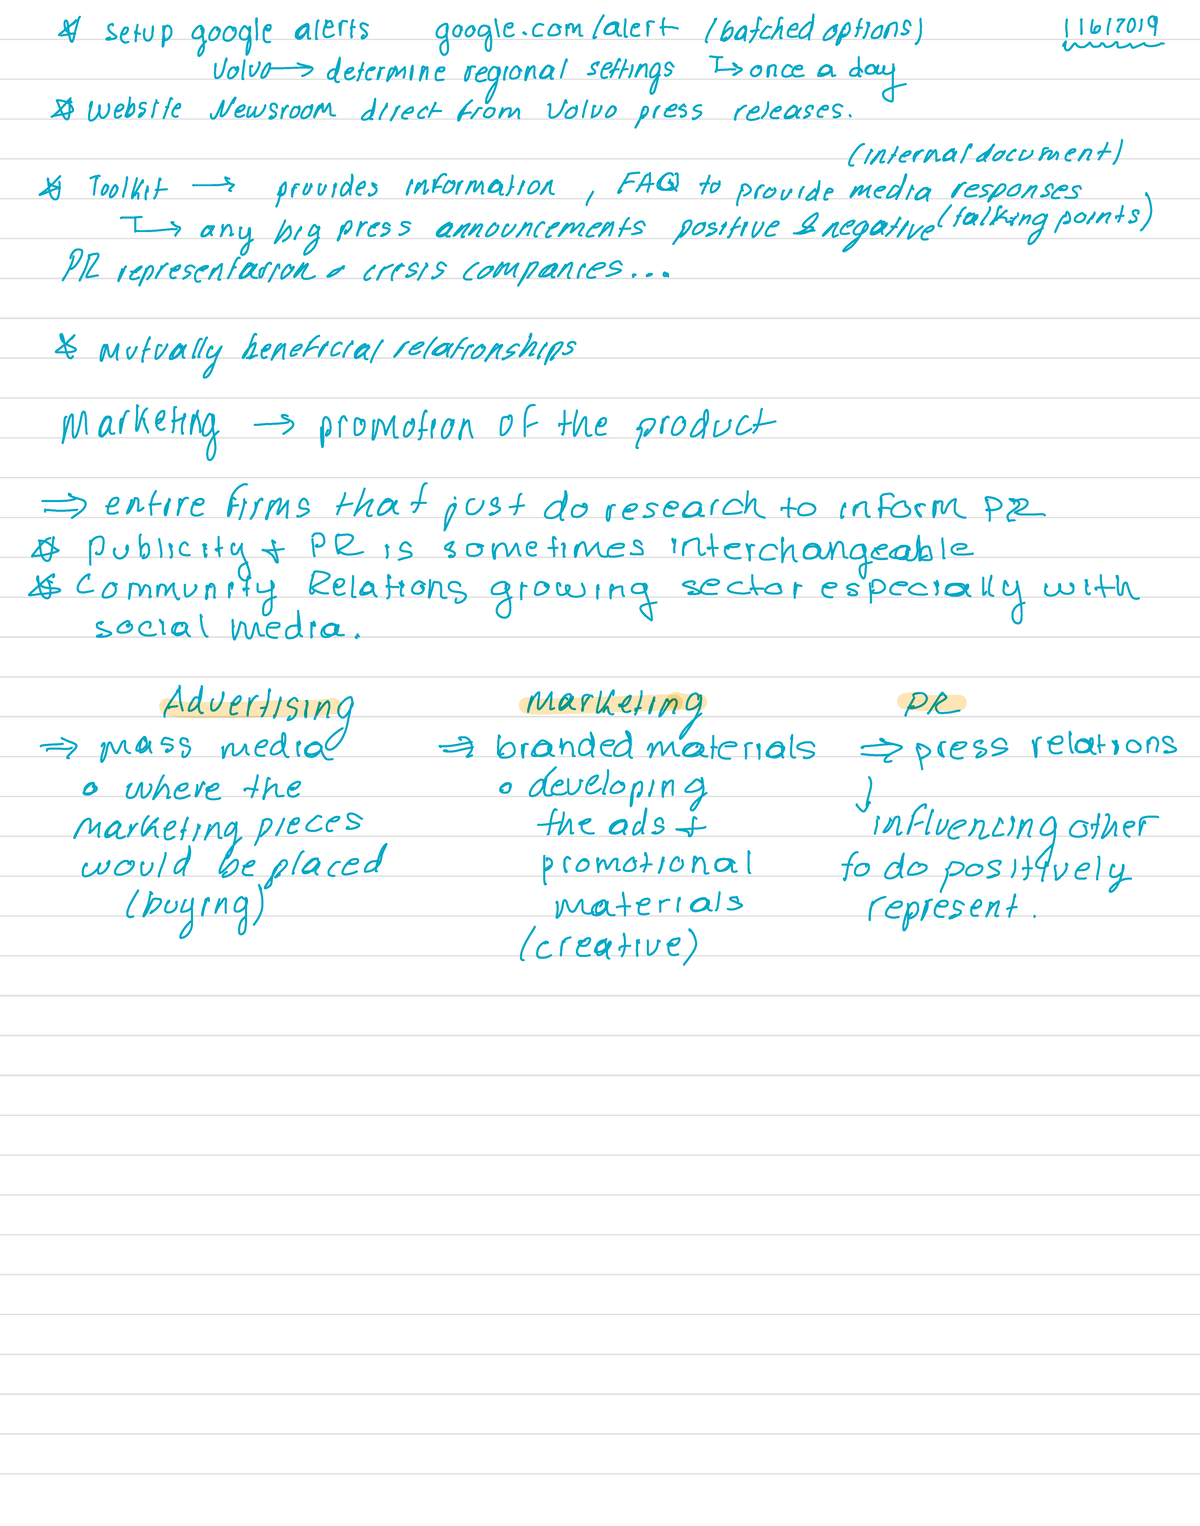 ☆ setup google alerts google.com/alert (batched options) 1/16/2019
Volvo → determine regional settings ↳ once a day
☆ website Newsroom direct from Volvo press releases.
(internal document)
☆ Toolkit → provides information, FAQ to provide media responses
↳ any big press announcements positive & negative (talking points)
PR representation • crisis companies...
☆ mutually beneficial relationships
Marketing → promotion of the product
⇒ entire firms that just do research to inform PR
☆ Publicity + PR is sometimes interchangeable
☆ Community Relations growing sector especially with
social media.
Advertising
⇒ mass media
• where the
marketing pieces
would be placed
(buying)
Marketing
⇒ branded materials
• developing
the ads +
promotional
materials
(creative)
PR
⇒ press relations
↓
influencing other
to do positively
represent.